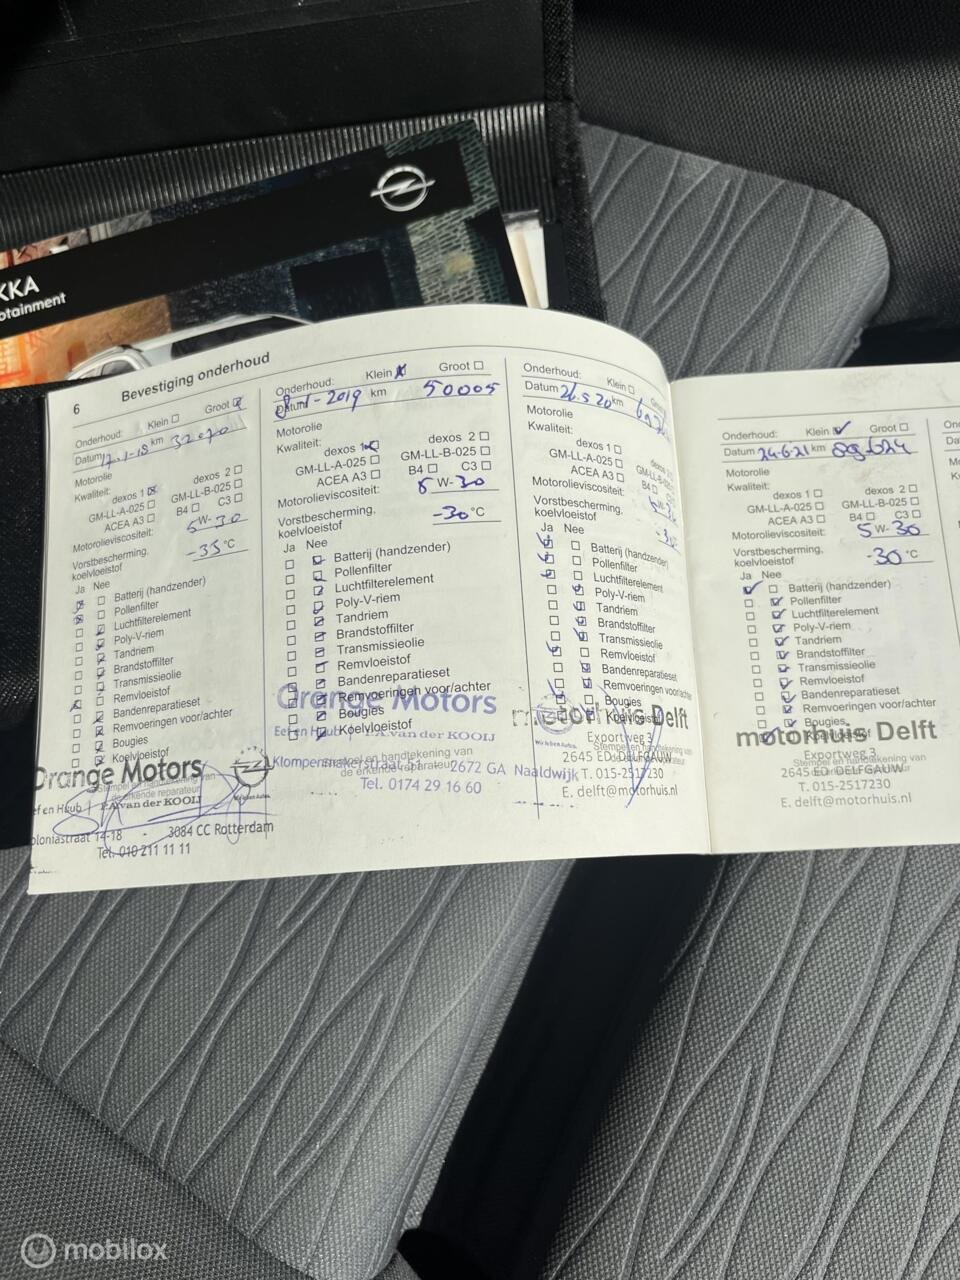 KKA
otainment
6
Bevestiging onderhoud
Onderhoud: Klein Groot
Datum 17-1-18 km
Motorolie
Kwaliteit:
dexos 1 dexos 2
GM-LL-A-025 GM-LL-B-025
ACEA A3 B4 C3
Motorolieviscositeit: 5 W-30
Vorstbescherming,
koelvloeistof -35 °C
Ja Nee
Batterij (handzender)
Pollenfilter
Luchtfilterelement
Poly-V-riem
Tandriem
Brandstoffilter
Transmissieolie
Remvloeistof
Bandenreparatieset
Remvoeringen voor/achter
Bougies
Koelvloeistof
Orange Motors
Stempel en handtekening van
de erkende reparateur
P.A. van der KOOIJ
Wir leben Autos.
oloniastraat 14-18 - 3084 CC Rotterdam
Tel. 010 211 11 11
Onderhoud: Klein Groot
Datum 8-1-2019 km 50005
Motorolie
Kwaliteit:
dexos 1 dexos 2
GM-LL-A-025 GM-LL-B-025
ACEA A3 B4 C3
Motorolieviscositeit: 5 W-30
Vorstbescherming,
koelvloeistof -30 °C
Ja Nee
Batterij (handzender)
Pollenfilter
Luchtfilterelement
Poly-V-riem
Tandriem
Brandstoffilter
Transmissieolie
Remvloeistof
Bandenreparatieset
Remvoeringen voor/achter
Bougies
Koelvloeistof
Orange Motors
P.A. van der KOOIJ
Stempel en handtekening van
de erkende reparateur
Klompenmakerstraat 51 2672 GA Naaldwijk
Tel. 0174 29 16 60
Onderhoud: Klein
Datum 26.5.20 km
Motorolie
Kwaliteit:
dexos 1
GM-LL-A-025
ACEA A3 B4
Motorolieviscositeit:
Vorstbescherming,
koelvloeistof
Ja Nee
Batterij (handzender)
Pollenfilter
Luchtfilterelement
Poly-V-riem
Tandriem
Brandstoffilter
Transmissieolie
Remvloeistof
Bandenreparatieset
Remvoeringen voor/achter
Bougies
Koelvloeistof
motorhuis Delft
Exportweg 3
2645 ED DELFGAUW
T. 015-2517230
E. delft@motorhuis.nl
Onderhoud: Klein Groot
Datum 24-6-21 km
Motorolie
Kwaliteit:
dexos 1 dexos 2
GM-LL-A-025 GM-LL-B-025
ACEA A3 B4 C3
Motorolieviscositeit: 5 W-30
Vorstbescherming,
koelvloeistof -30 °C
Ja Nee
Batterij (handzender)
Pollenfilter
Luchtfilterelement
Poly-V-riem
Tandriem
Brandstoffilter
Transmissieolie
Remvloeistof
Bandenreparatieset
Remvoeringen voor/achter
Bougies
Koelvloeistof
motorhuis Delft
Exportweg 3
Stempel en handtekening van
2645 ED DELFGAUW
T. 015-2517230
E. delft@motorhuis.nl
mobilox